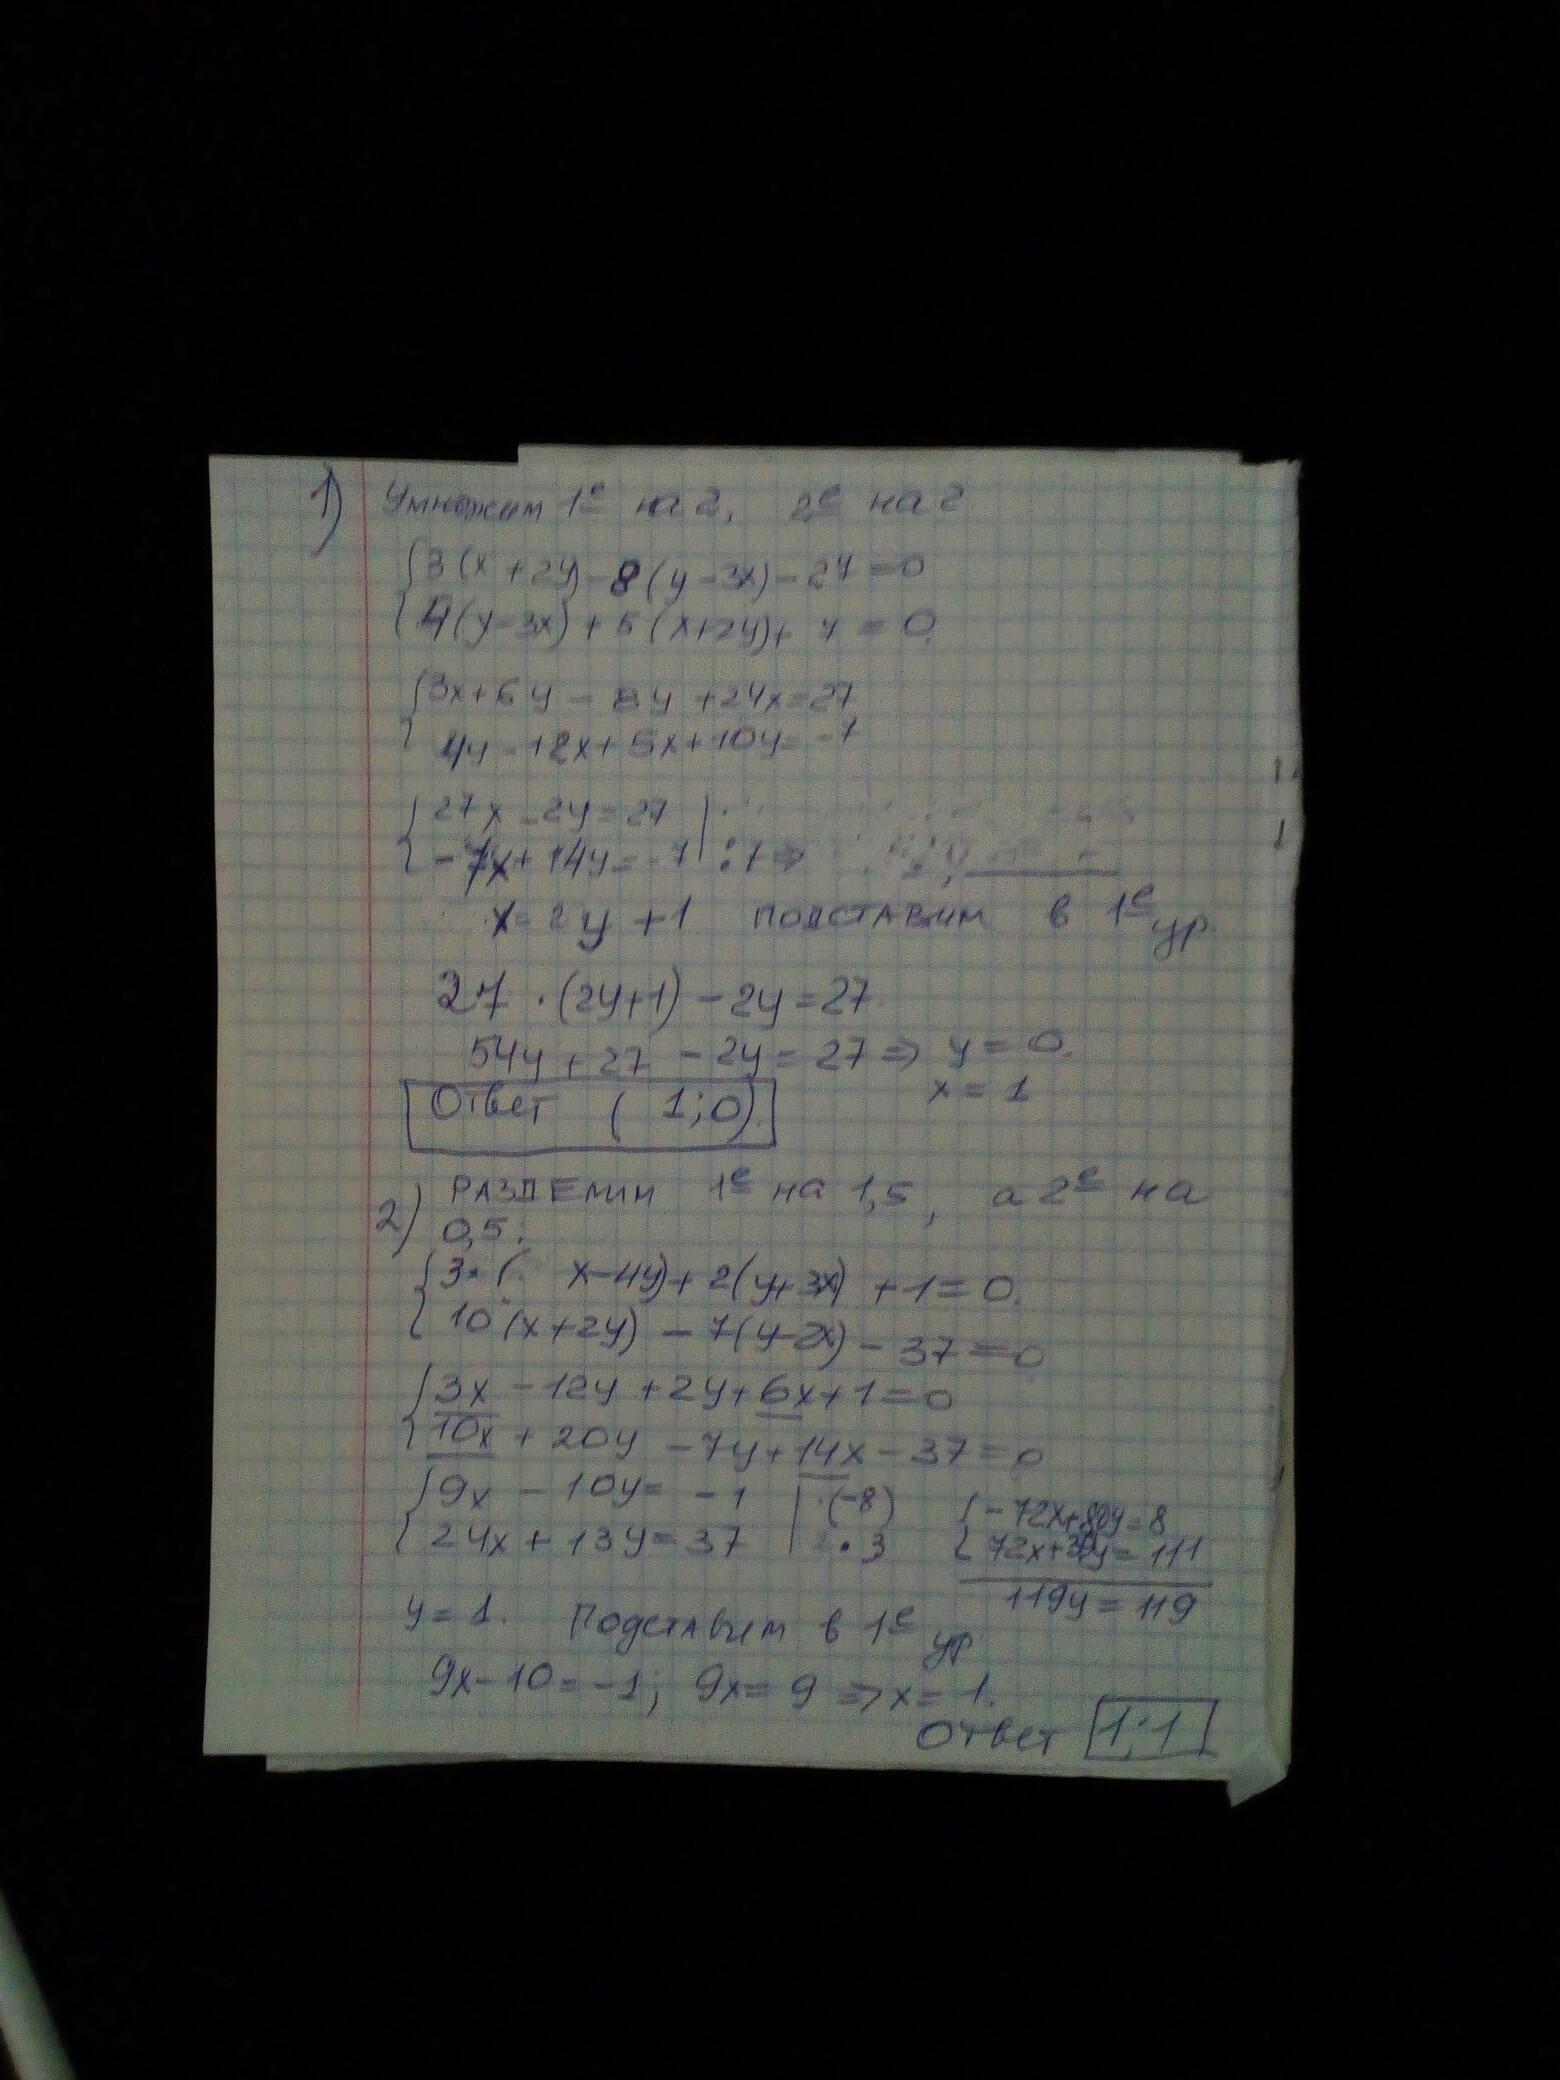 1) Умножим 1е на 2, 2е на 2
3(x+2y)-8(y-3x)-27=0
4(y-3x)+5(x+2y)+7=0.
3x+6y-8y+24x=27
4y-12x+5x+10y=-7
27x-2y=27
-7x+14y=-7 | :7 ⇒
x=2y+1 подставим в 1е ур.
27·(2y+1)-2y=27.
54y+27-2y=27 ⇒ y=0.
x=1
Ответ (1;0).
2) РАЗДЕЛИМ 1е на 1,5, а 2е на
0,5:
3·(x-4y)+2(y+3x)+1=0.
10(x+2y)-7(y-2x)-37=0
3x-12y+2y+6x+1=0
10x+20y-7y+14x-37=0
9x-10y=-1 | ·(-8) -72x+80y=8
24x+13y=37 | ·3 72x+39y=111
119y=119
y=1. Подставим в 1е ур
9x-10=-1; 9x=9 ⇒ x=1.
Ответ 1;1